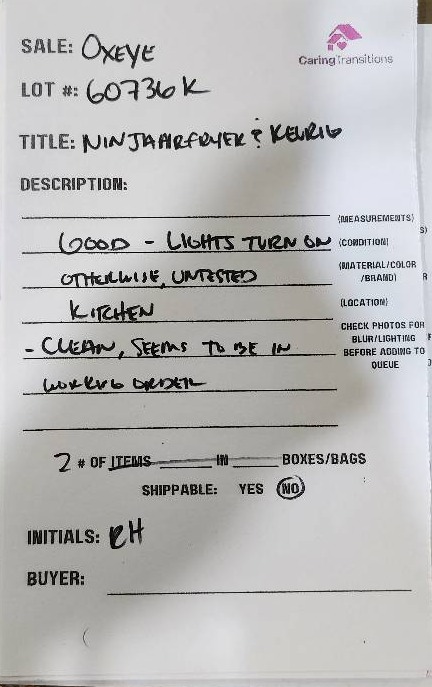 SALE: OXEYE
CaringTransitions
LOT #: 60736K
TITLE: NINJA AIRFRYER & KEURIG
DESCRIPTION:
(MEASUREMENTS)
GOOD - LIGHTS TURN ON (CONDITION)
S)
OTHERWISE, UNTESTED (MATERIAL/COLOR
/BRAND) R
KITCHEN (LOCATION)
- CLEAN, SEEMS TO BE IN CHECK PHOTOS FOR
BLUR/LIGHTING
BEFORE ADDING TO
QUEUE
WORKING ORDER
2 # OF ITEMS IN BOXES/BAGS
SHIPPABLE: YES NO
INITIALS: RH
BUYER: